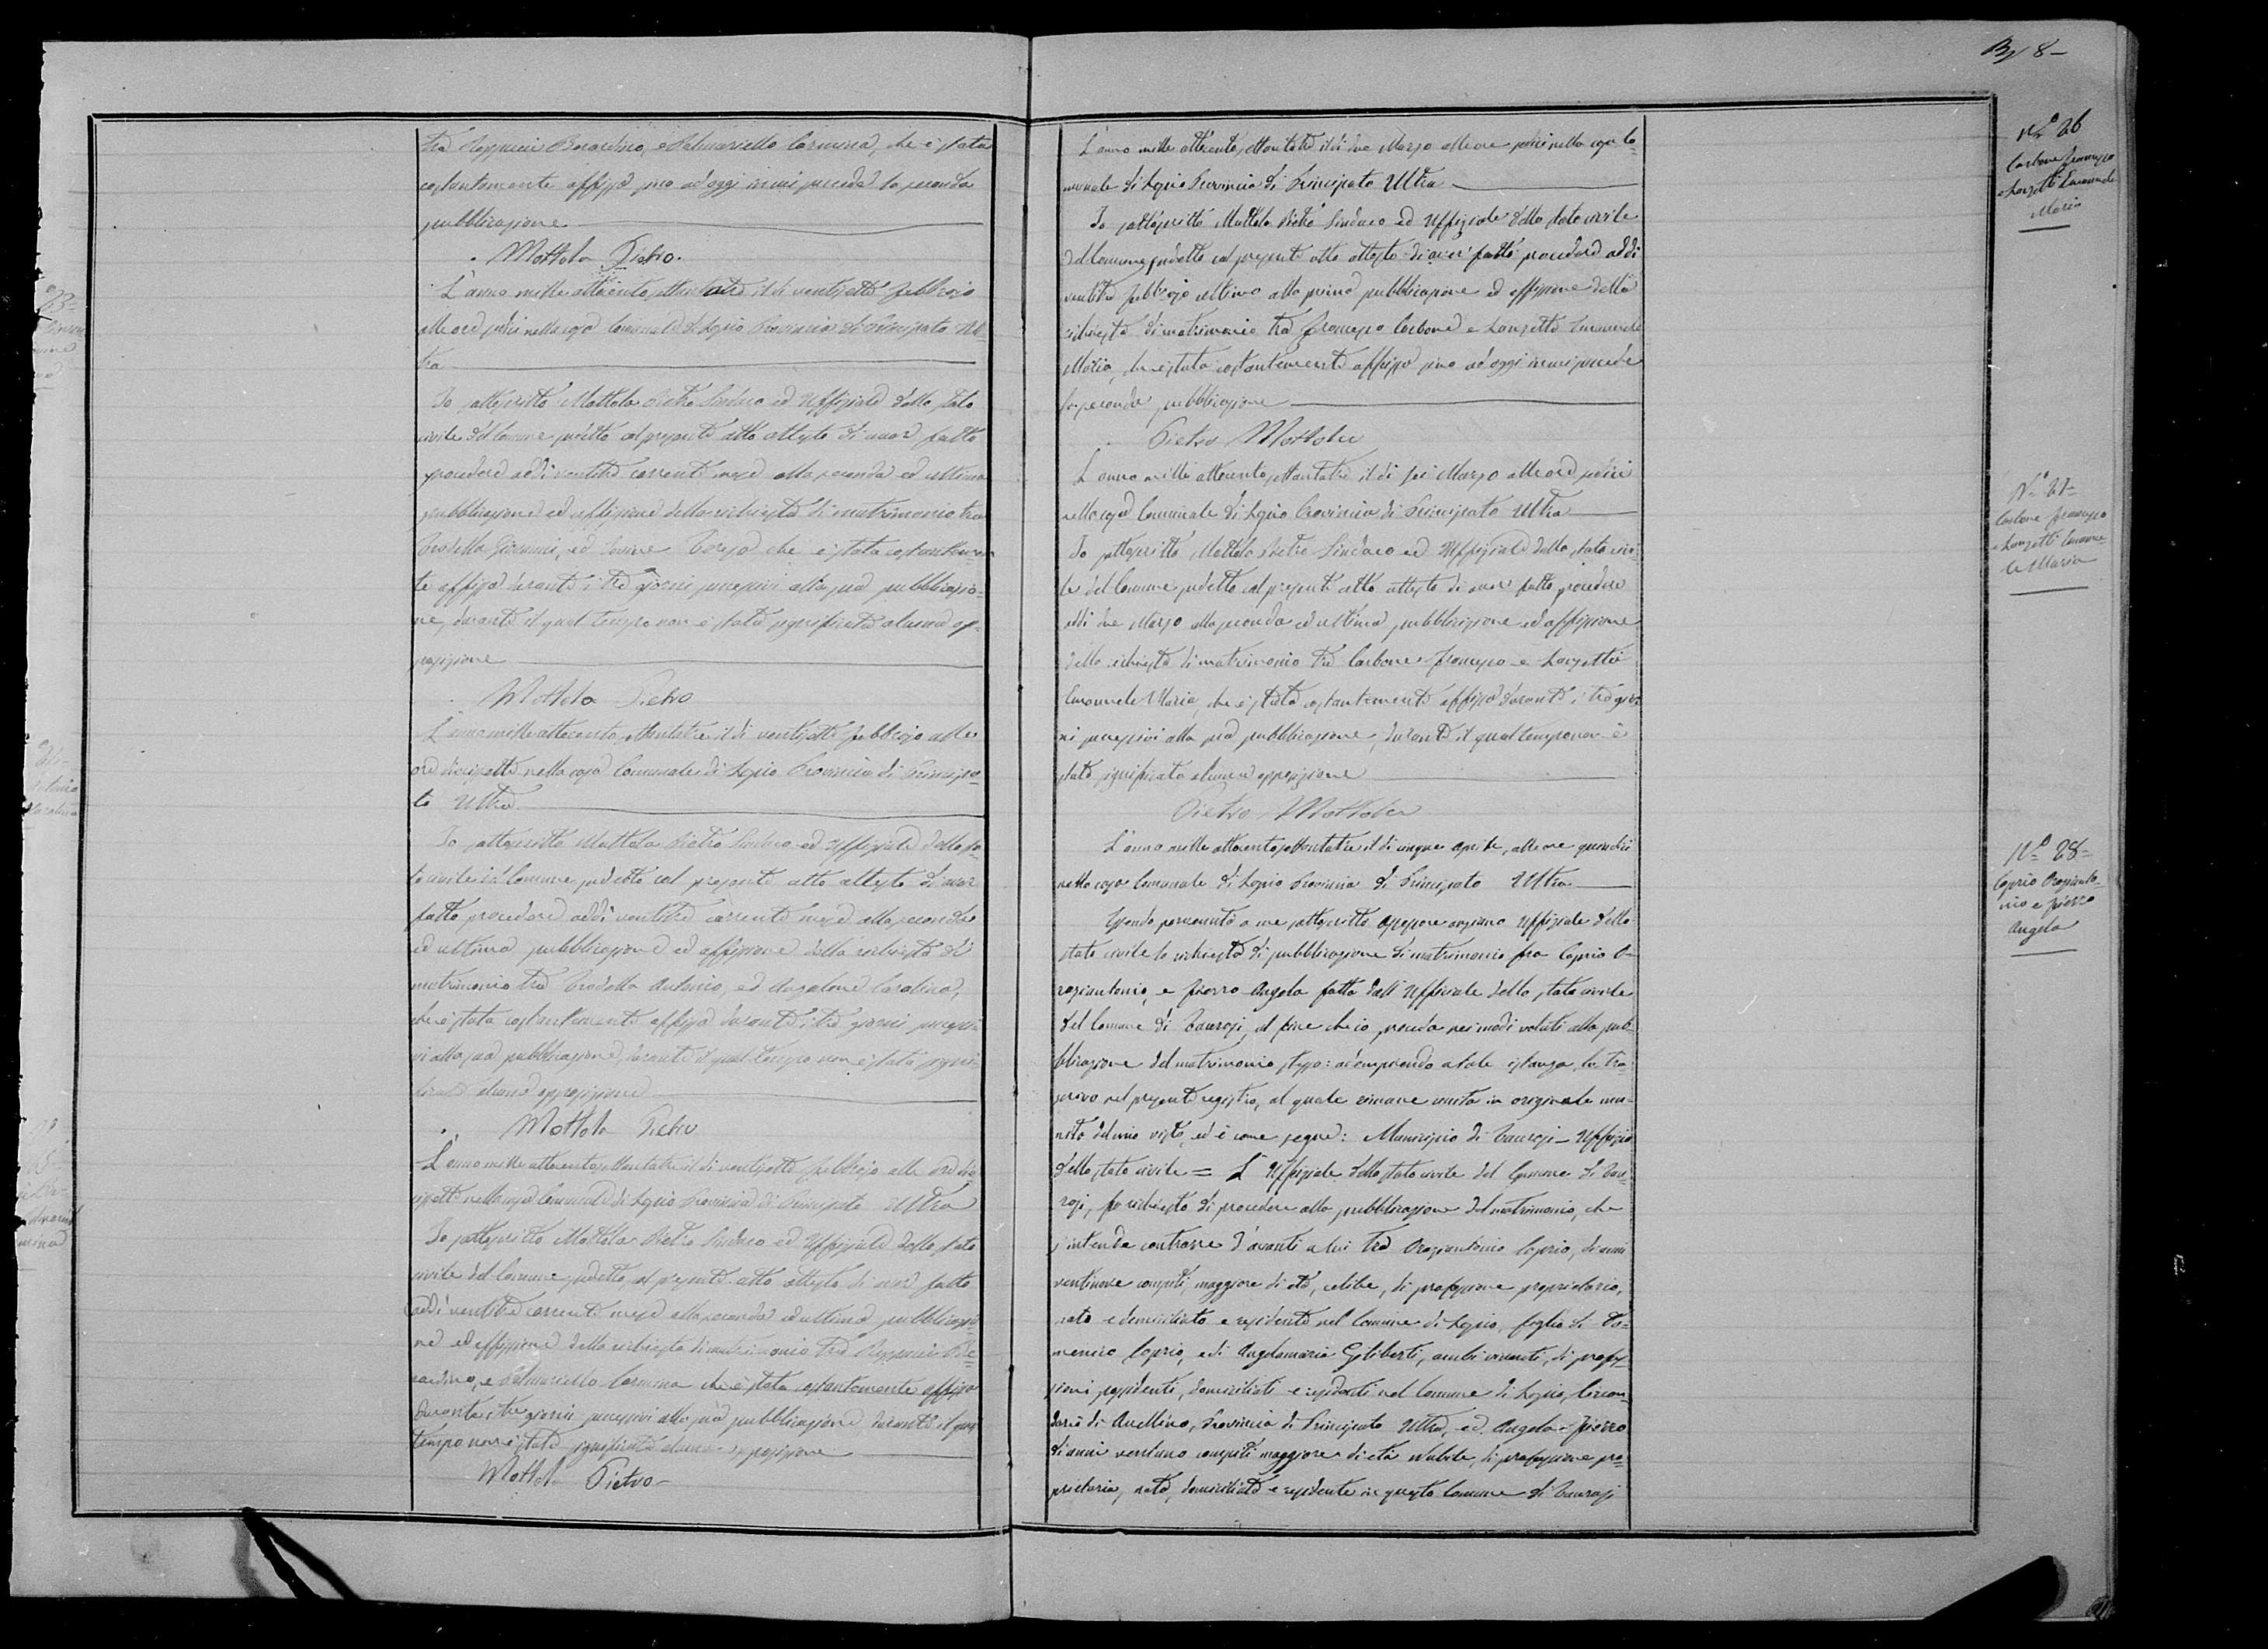 tra Reppucci Berardino, e Palmariello Carmina, che è stata
costantemente affissa sino ad oggi in cui precede la seconda
pubblicazione
Mottola Pietro.
L'anno mille ottocento settantatre il dì ventisette febbrajo
alle ore sedici nella casa Comunale di Lapio Provincia di Principato Ul-
tra
Io sottoscritto Mottola Pietro Sindaco ed Uffiziale dello Stato
civile del Comune sudetto col presente atto attesto di aver fatto
procedere addì ventitre corrente mese alla seconda ed ultima
pubblicazione ed affissione della richiesta di matrimonio tra
Trodella Giovanni, ed Teresa che è stata costantemen-
te affissa durante i tre giorni successivi alla sua pubblicazio-
ne, durante il qual tempo non è stata significata alcuna op-
posizione
Mottola Pietro
L'anno mille ottocento settantatre il dì ventisette febbrajo alle
ore diciasette nella casa Comunale di Lapio Provincia di Principa-
to Ultra
Io sottoscritto Mottola Pietro Sindaco ed Uffiziale dello Sta-
to civile del Comune sudetto col presente atto attesto di aver
fatto procedere addì ventitre corrente mese alla seconda
ed ultima pubblicazione ed affissione della richiesta di
matrimonio tra Trodella Antonio, ed Angelone Carolina,
che è stata costantemente affissa durante i tre giorni successi-
vi alla sua pubblicazione, durante il qual tempo non è stata signi-
ficata alcuna opposizione
Mottola Pietro
L'anno mille ottocento settantatre il dì ventisette febbrajo alle ore di-
cisette nella casa Comunale di Lapio Provincia di Principato Ultra
Io sottoscritto Mottola Pietro Sindaco ed Uffiziale dello Stato
civile del Comune sudetto col presente atto attesto di aver fatto
addì ventitre corrente mese alla seconda ed ultima pubblicazio-
ne ed affissione della richiesta di matrimonio tra Reppucci Be-
rardino, e Palmariello Carmina che è stata costantemente affissa
durante i tre giorni successivi alla sua pubblicazione durante il qual
tempo non è stata significata alcuna opposizione
Mottola Pietro
8
L'anno mille ottocento settantatre il dì due Marzo alle ore sedici nella casa Co-
munale di Lapio Provincia di Principato Ultra
Io sottoscritto Mottola Pietro Sindaco ed Uffiziale dello stato civile
del Comune sudetto col presente atto attesto di aver fatto procedere addì
ventitre febbrajo ultimo alla prima pubblicazione ed affissione della
richiesta di matrimonio tra Francesco Carbone e Lanzetti Emanuele
Maria, che è stata costantemente affissa sino ad oggi in cui precede
la seconda pubblicazione
Pietro Mottola
L'anno mille ottocento settantatre il dì sei Marzo alle ore sedici
nella casa Comunale di Lapio Provincia di Principato Ultra
Io sottoscritto Mottola Pietro Sindaco ed Uffiziale dello stato civi-
le del Comune sudetto col presente atto attesto di aver fatto procedere
addì due Marzo alla seconda ed ultima pubblicazione ed affissione
della richiesta di matrimonio tra Carbone Francesco e Lanzetti
Emanuele Maria, che è stata costantemente affissa durante i tre gior-
ni successivi alla sua pubblicazione, durante il qual tempo non è
stata significata alcuna opposizione
Pietro Mottola
L'anno mille ottocento settantatre il dì cinque Aprile, alle ore quindici
nella casa Comunale di Lapio Provincia di Principato Ultra
Essendo pervenuta a me sottoscritto Assessore anziano Uffiziale dello
stato civile la richiesta di pubblicazione di matrimonio fra Caprio O-
raziantonio, e Fierro Angela fatta dall'Uffiziale dello stato civile
del Comune di Taurasi, al fine che io proceda nei modi voluti alla pub-
blicazione del matrimonio stesso: adempiendo a tale istanza, la tra-
scrivo nel presente registro, al quale rimane unita in originale mu-
nita del mio visto, ed è come segue: Municipio di Taurasi - Uffizio
dello stato civile = L'Uffiziale dello stato civile del Comune di Tau-
rasi, fa richiesta di procedere alla pubblicazione del matrimonio, che
s'intende contrarre d'avanti a lui tra Oraziantonio Caprio, di anni
ventinove compiti, maggiore di età, celibe, di professione proprietario,
nato e domiciliato e residente nel Comune di Lapio, figlio di Do-
menico Caprio, e di Angelamaria Giliberti, ambi viventi, di profes-
sioni possidenti, domiciliati e residenti nel Comune di Lapio, Circon-
dario di Avellino, Provincia di Principato Ultra, ed Angela Fierro
di anni ventuno compiti maggiore di età nubile, di professione pro-
prietaria, nata, domiciliata e residente in questo Comune di Taurasi
N.° 26
Carbone Francesco
e Lanzetti Emanuele
Maria
N.° 27
Carbone Francesco
e Lanzetti Emanue-
le Maria
N.° 28
Caprio Orazianto-
nio e Fierro
Angela